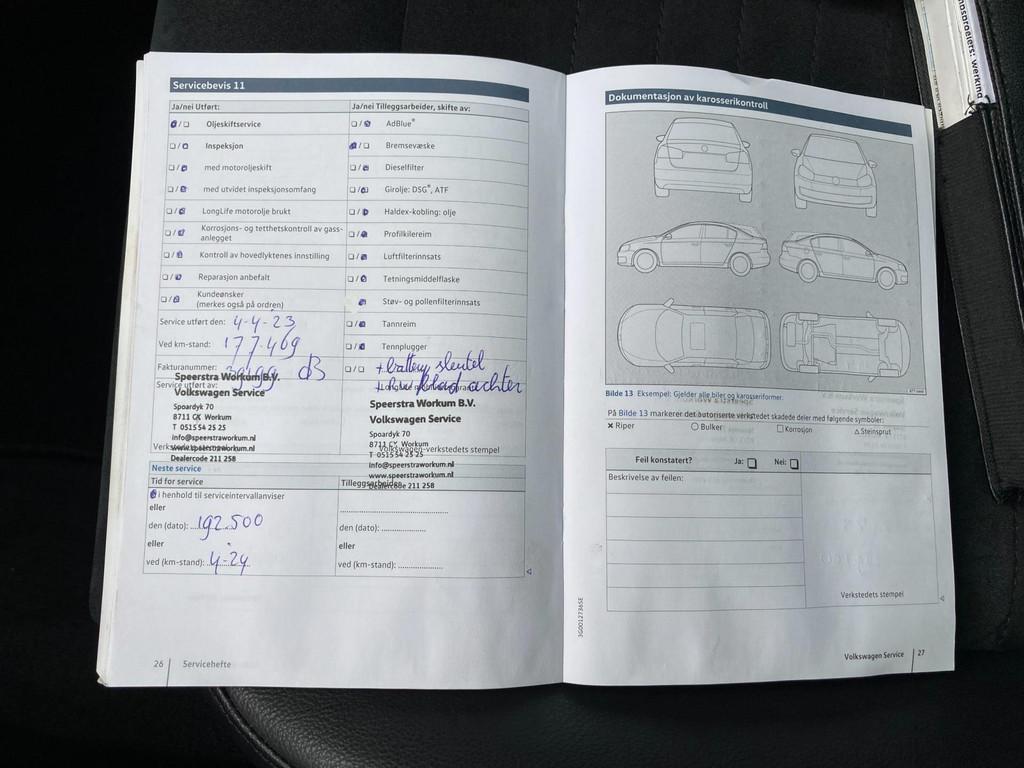 Servicebevis 11
Ja/nei Utført:
Oljeskiftservice
Inspeksjon
med motoroljeskift
med utvidet inspeksjonsomfang
LongLife motorolje brukt
Korrosjons- og tetthetskontroll av gass-
anlegget
Kontroll av hovedlyktenes innstilling
Reparasjon anbefalt
Kundeønsker
(merkes også på ordren)
Service utført den: 4-4-23
Ved km-stand: 177.469
Fakturanummer:
Service utført av:
Speerstra Workum B.V.
Volkswagen Service
Spoardyk 70
8711 CX Workum
T 0515 54 25 25
info@speerstraworkum.nl
www.speerstraworkum.nl
Dealercode 211 258
Ja/nei Tilleggsarbeider, skifte av:
AdBlue®
Bremsevæske
Dieselfilter
Girolje: DSG®, ATF
Haldex-kobling: olje
Profilkilereim
Luftfilterinnsats
Tetningsmiddelflaske
Støv- og pollenfilterinnsats
Tannreim
Tennplugger
+ battery sleutel
blad achter
Speerstra Workum B.V.
Volkswagen Service
Spoardyk 70
8711 CX Workum
Volkswagen-verkstedets stempel
T 0515 54 25 25
info@speerstraworkum.nl
www.speerstraworkum.nl
Dealercode 211 258
Neste service
Tid for service
i henhold til serviceintervallanviser
eller
den (dato): 192.500
eller
ved (km-stand): 4-24
Tilleggsarbeider
den (dato):
eller
ved (km-stand):
26 Servicehefte
Dokumentasjon av karosserikontroll
Bilde 13 Eksempel: Gjelder alle biler og karosseriformer.
På Bilde 13 markerer det autoriserte verkstedet skadede deler med følgende symboler:
× Riper ○ Bulker □ Korrosjon △ Steinsprut
Feil konstatert? Ja: Nei:
Beskrivelse av feilen:
Verkstedets stempel
3G0012736SE
Volkswagen Service 27